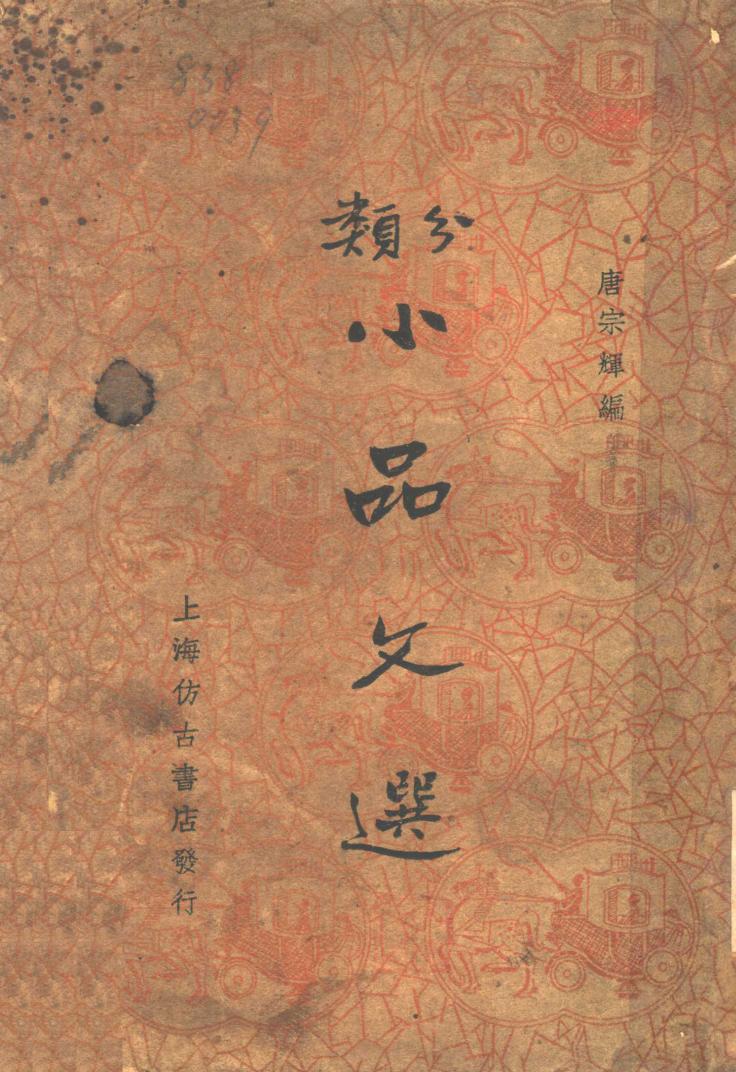 唐宗輝編
分類
小品文選
上海仿古書店發行
838
0039